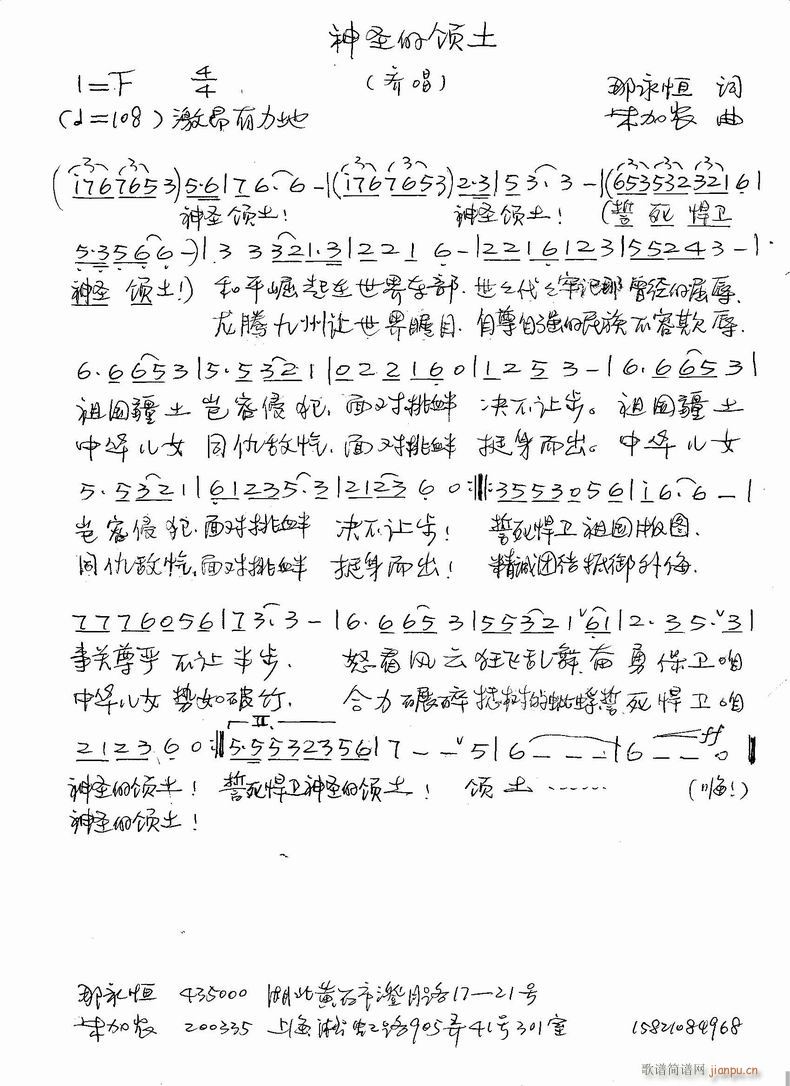 神圣的领土
1=F 4/4 (齐唱) 那永恒 词
(♩=108) 激昂有力地 朱加农 曲
(1767653)5·6|76·6-|(1767653)2·3|53·3-|(6535323216|
神圣领土! 神圣领土! (誓死捍卫
5·3566-)|33321·3|2216-|2216123|55243-|
神圣领土!) 和平崛起在世界东部.世世代代牢记那曾经的屈辱.
龙腾九州让世界瞩目.自尊自强的民族不容欺辱.
6·6653|5·5321|022160|1253-|6·6653|
祖国疆土岂容侵犯.面对挑衅 决不让步。祖国疆土
中华儿女同仇敌忾.面对挑衅 挺身而出。中华儿女
5·5321|61235·3|212360:‖:3553056|i6·6-|
岂容侵犯.面对挑衅 决不让步! 誓死捍卫祖国版图.
同仇敌忾.面对挑衅 挺身而出! 精诚团结抵御外侮.
7776056|73·3-|6·6653|55321ˇ61|2·35·ˇ3|
事关尊严不让半步. 怒看风云狂飞乱舞奋勇保卫咱
中华儿女势如破竹. 合力碾碎 誓死捍卫咱
II.
212360:‖5·55532356|7--ˇ5|6---|6--0‖ ff
神圣的领土! 誓死捍卫神圣的领土! 领土…… (嗨!)
神圣的领土!
那永恒 435000 湖北黄石市澄月路17—21号
朱加农 200335 上海淞虹路905弄41号301室 15821084968
歌谱简谱网
jianpu.cn